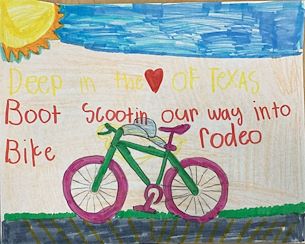 Deep in the ❤ OF TEXAS
Boot Scootin our way into
Bike Rodeo